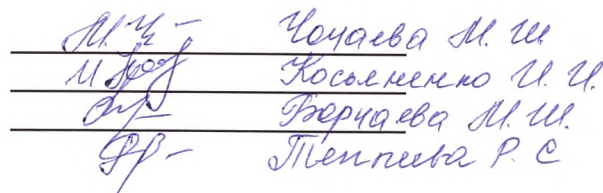 М.Ч - Чочаева М. Ш
Косьяненко И. И.
Борчаева М. Ш.
Теппеева Р. С